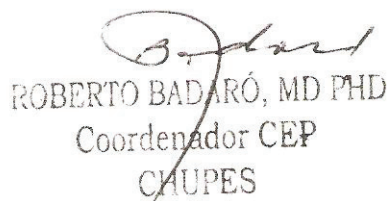 Badaró
ROBERTO BADARÓ, MD PHD
Coordenador CEP
CHUPES